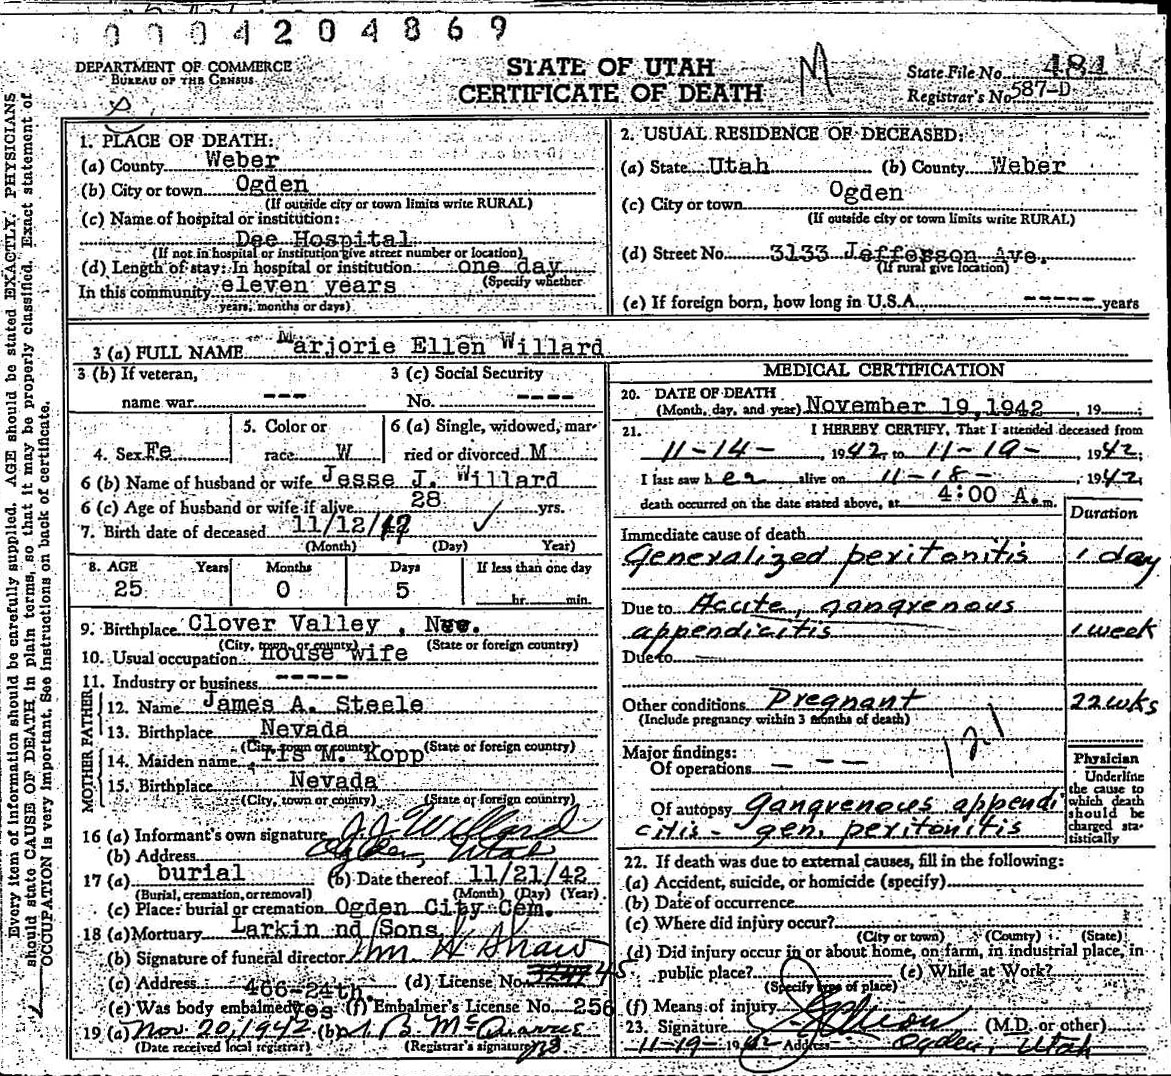 0 0 0 4 2 0 4 8 6 9
DEPARTMENT OF COMMERCE
BUREAU OF THE CENSUS
STATE OF UTAH
CERTIFICATE OF DEATH
M
State File No. 481
Registrar's No. 587-D
Every item of information should be carefully supplied. AGE should be stated EXACTLY. PHYSICIANS
should state CAUSE OF DEATH in plain terms, so that it may be properly classified. Exact statement of
OCCUPATION is very important. See instructions on back of certificate.
1. PLACE OF DEATH:
(a) County Weber
(b) City or town Ogden
(If outside city or town limits write RURAL)
(c) Name of hospital or institution:
Dee Hospital
(If not in hospital or institution give street number or location)
(d) Length of stay: In hospital or institution one day
(Specify whether
In this community eleven years
years, months or days)
2. USUAL RESIDENCE OF DECEASED:
(a) State Utah (b) County Weber
(c) City or town Ogden
(If outside city or town limits write RURAL)
(d) Street No. 3133 Jefferson Ave.
(If rural give location)
(e) If foreign born, how long in U.S.A. ----- years
3 (a) FULL NAME Marjorie Ellen Willard
3 (b) If veteran,
name war --- 
3 (c) Social Security
No. ----
4. Sex Fe
5. Color or
race W
6 (a) Single, widowed, mar-
ried or divorced M
6 (b) Name of husband or wife Jesse J. Willard
6 (c) Age of husband or wife if alive 28 yrs.
7. Birth date of deceased 11/12/17
(Month) (Day) Year)
8. AGE Years Months Days If less than one day
25 0 5 hr. min.
9. Birthplace Clover Valley, Nev.
(City, town, or county) (State or foreign country)
10. Usual occupation house wife
11. Industry or business -----
FATHER
12. Name James A. Steele
13. Birthplace Nevada
(City, town or county) (State or foreign country)
MOTHER
14. Maiden name Iris M. Kopp
15. Birthplace Nevada
(City, town or county) (State or foreign country)
16 (a) Informant's own signature J. J. Willard
(b) Address Ogden, Utah
17 (a) burial (b) Date thereof 11/21/42
(Burial, cremation, or removal) (Month) (Day) (Year)
(c) Place: burial or cremation Ogden City Cem.
18 (a) Mortuary Larkin nd Sons
(b) Signature of funeral director Wm K Shaw
(c) Address 466-24th. (d) License No. 45
(e) Was body embalmed yes (f) Embalmer's License No. 256
19 (a) Nov. 20, 1942 (b)
(Date received local registrar) (Registrar's signature)
MEDICAL CERTIFICATION
20. DATE OF DEATH
(Month, day, and year) November 19, 1942, 19
21. I HEREBY CERTIFY, That I attended deceased from
11-14-, 1942, to 11-19-, 1942;
I last saw her alive on 11-18-, 1942,
death occurred on the date stated above, at 4:00 A.m.
Duration
Immediate cause of death
Generalized peritonitis 1 day
Due to Acute, gangrenous
appendicitis 1 week
Due to
Other conditions Pregnant 22 wks
(Include pregnancy within 3 months of death)
121
Major findings:
Of operations - - -
Of autopsy gangrenous appendi
citis - gen. peritonitis
Physician
Underline
the cause to
which death
should be
charged sta-
tistically
22. If death was due to external causes, fill in the following:
(a) Accident, suicide, or homicide (specify)
(b) Date of occurrence
(c) Where did injury occur?
(City or town) (County) (State)
(d) Did injury occur in or about home, on farm, in industrial place, in
public place? (e) While at Work?
(Specify type of place)
(f) Means of injury
23. Signature (M.D. or other)
11-19-1942 Address Ogden, Utah